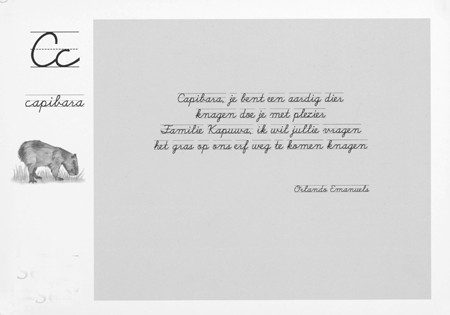 Cc
capibara
Capibara, je bent een aardig dier
knagen doe je met plezier
Familie Kapuwa, ik wil jullie vragen
het gras op ons erf weg te komen knagen
Orlando Emanuels